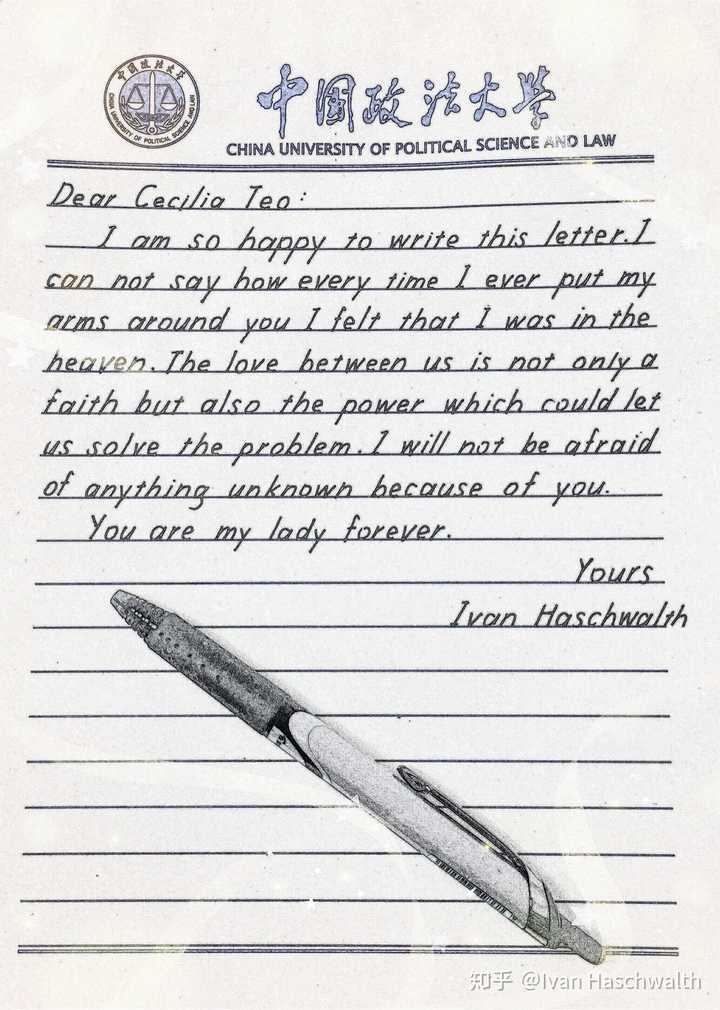 中国政法大学
CHINA UNIVERSITY OF POLITICAL SCIENCE AND LAW
中国政法大学
CHINA UNIVERSITY OF POLITICAL SCIENCE AND LAW
Dear Cecilia Teo:
I am so happy to write this letter. I
can not say how every time I ever put my
arms around you I felt that I was in the
heaven. The love between us is not only a
faith but also the power which could let
us solve the problem. I will not be afraid
of anything unknown because of you.
You are my lady forever.
Yours
Ivan Haschwalth
知乎 @Ivan Haschwalth